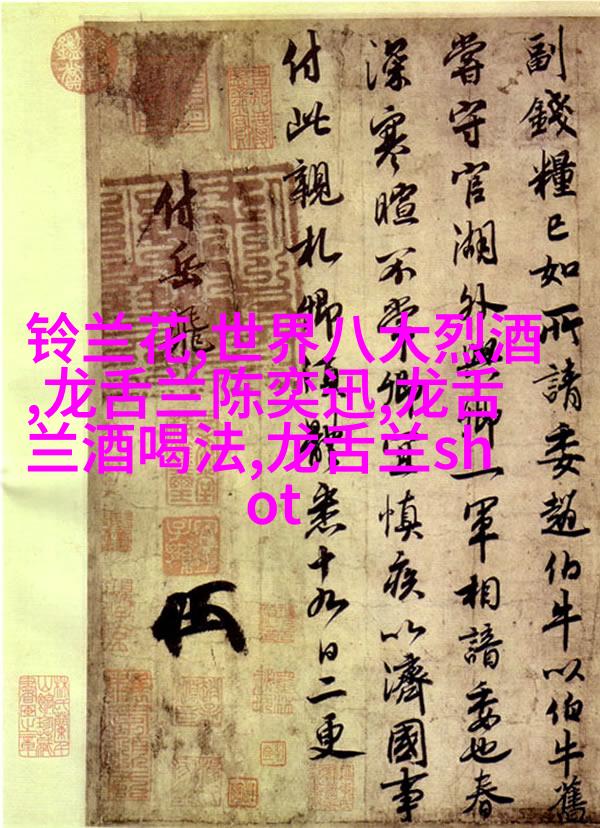 铃兰花,世界八大烈酒
,龙舌兰陈奕迅,龙舌
兰酒喝法,龙舌兰sh
ot
副錢糧已如所請委趙伯牛以伯牛舊
嘗守官湖外與卿一軍相諳委也春
深寒暄不常卿宜慎疾以濟國事
付此親札卿須體悉十九日二更
付岳飛